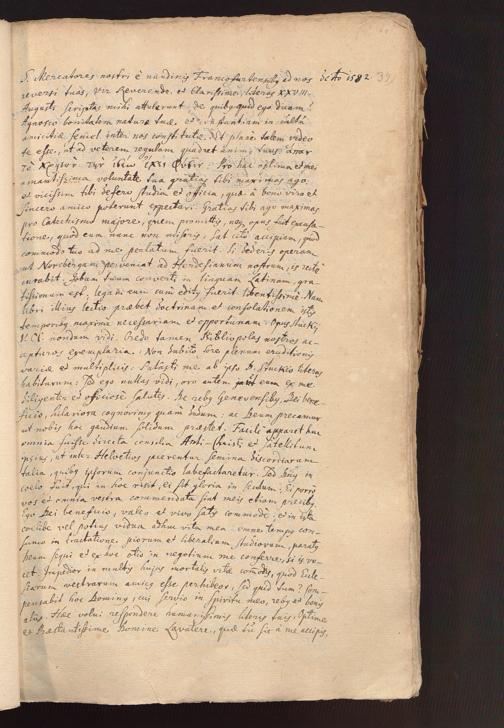 S. Mercatores nostri è nundinis Francofurtensibus ad nos octo 1582 391
reversi tuas, Vir Reverende, et Clarissime, literas XXVIII.
Augusti scriptas mihi attulerunt. De quibus quid ego dicam?
Agnosco bonitatem naturæ tuæ, et constantiam in colenda
amicitia semel inter nos constituta. Et plane talem video
te esse, ut ad veterem regulam quadret animus tuus
Pro hac optima et me
amantissima voluntate tua gratias tibi maximas ago,
et vicissim tibi defero studia et officia, quæ à bono viro et
sincero amico poterunt expectari. Gratias tibi ago maximas
pro Catechismo majore, quem promittis, non opus fuit excusa-
tione, quod eum nunc non miseris, sat cito accipiam, quod
commodo tuo ad me perlatum fuerit. Si dederis operam
ut Norebergam perveniat ad Herdesianum nostrum, is rectè
curabit. Jobum tuum converti in linguam Latinam, gra-
tissimum est, legam eum cum editus fuerit libentissimè. Nam
libri illius lectio præbet doctrinam et consolationem istis
temporibus maxime necessariam et opportunam. Opus Stuckij,
V. Cl. nondum vidi. Credo tamen Bibliopolas nostros ac-
cepturos exemplaria. Non dubito fore plenum eruditionis
variæ et multiplicis. Putasti me ab ipso D. Stuckio literas
habiturum: Sed ego nullas vidi, oro autem eum ex me
diligenter et officiose salutes. De rebus Genevensibus, Dei bene-
ficio, hilariora cognovimus quam dudum: ac Deum precamur
ut nobis hoc gaudium solidum præstet. Facile apparet huc
omnia fuisse directa consilia Anti-Christi et satellitum
ipsius, ut inter Helvetios sererentur semina discordiarum
talia, quibus ipsorum conjunctio labefactaretur. Sed Dominus in
coelo fuit, qui in hoc risit, ei sit gloria in seculum. Si porro
vos et omnia vestra commendata sint meis etiam precibus.
Ego Dei beneficio, valeo et vivo satis commodè, et in ista
coelibe vel potius vidua adhuc vita mea omne tempus con-
sumo in tractatione piorum et liberalium studiorum, paratus
Deum sequi et ex hoc otio in negotium me conferre, si is vo-
cet. Impedior in multis hujus mortalis vitæ commodis, quod Eccle-
siarum vestrarum amicus esse perhibeor, sed quid tum? Com-
pensabit hoc Dominus, cui servio in Spiritu meo, rebus et bonis
alijs. Hæc volui respondere humanissimis literis tuis. Optime
et Præstantissime Domine Lavatere, quæ tu sic à me accipies,